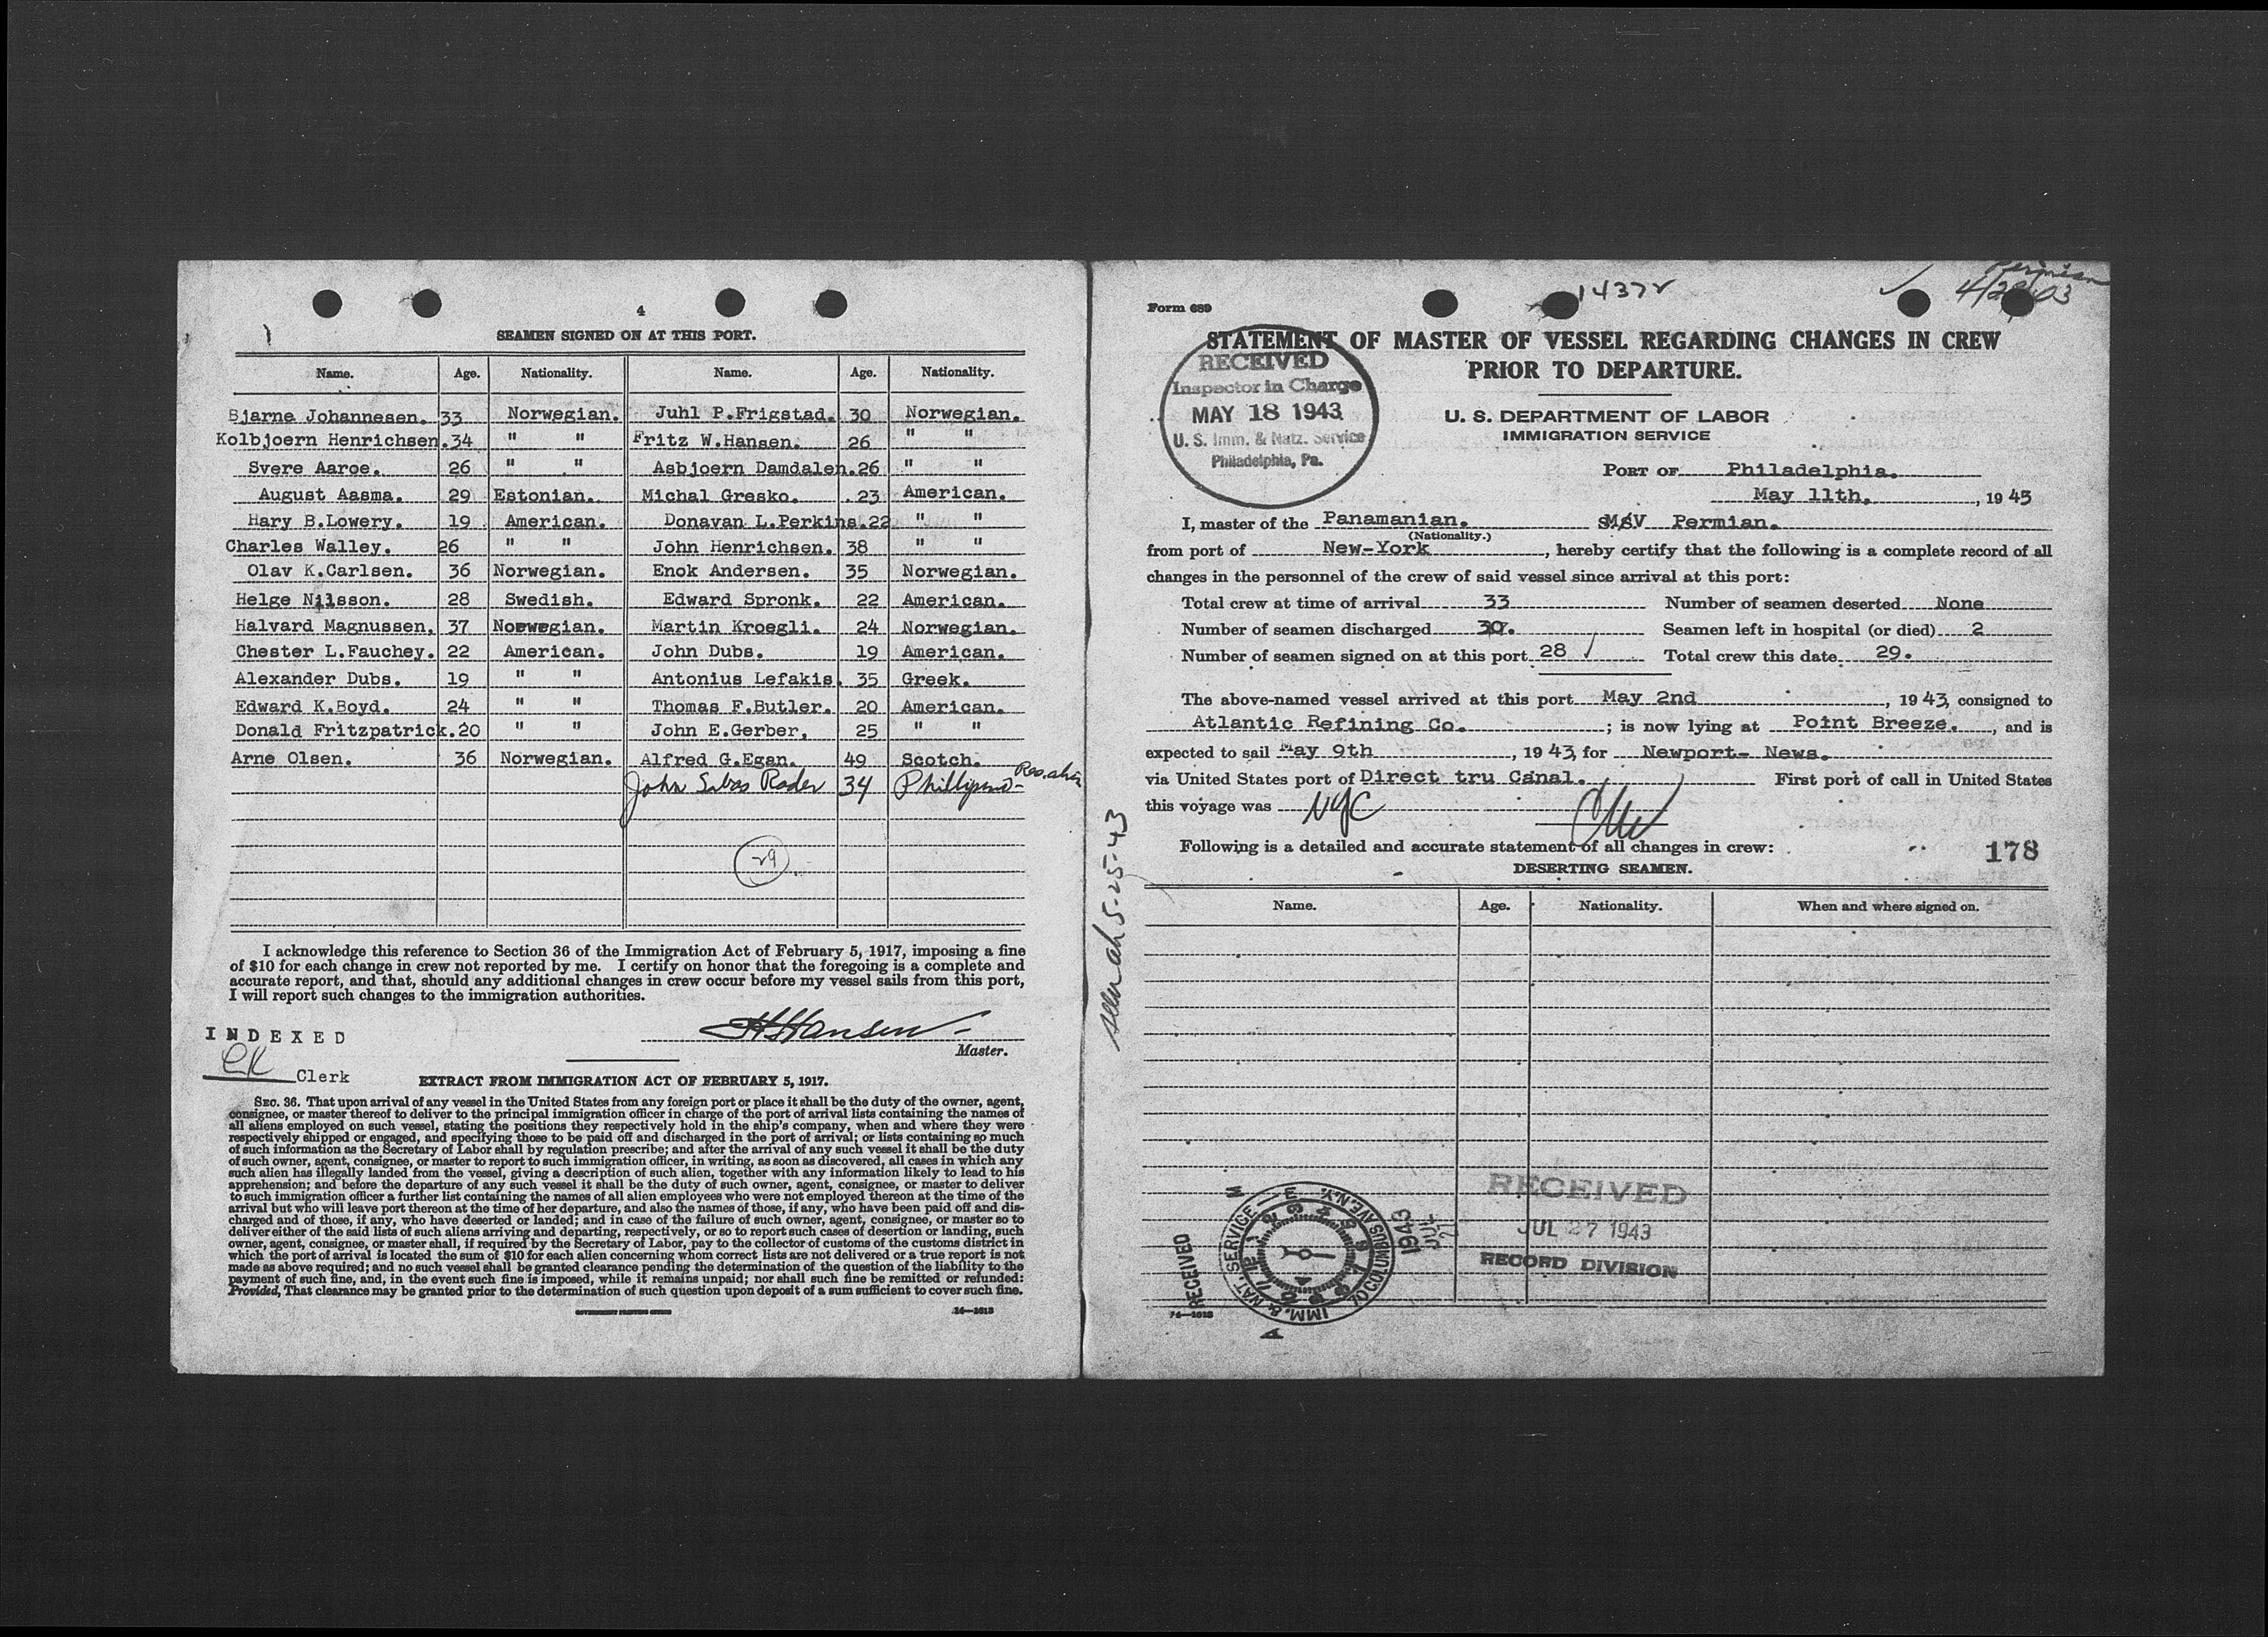 4
SEAMEN SIGNED ON AT THIS PORT.
Name. Age. Nationality. Name. Age. Nationality.
Bjarne Johannesen. 33 Norwegian. Juhl P.Frigstad. 30 Norwegian.
Kolbjoern Henrichsen. 34 " " Fritz W.Hansen. 26 " "
Svere Aaroe. 26 " " Asbjoern Damdalen. 26 " "
August Aasma. 29 Estonian. Michal Gresko. 23 American.
Hary B.Lowery. 19 American. Donavan L.Perkins. 22 " "
Charles Walley. 26 " " John Henrichsen. 38 " "
Olav K.Carlsen. 36 Norwegian. Enok Andersen. 35 Norwegian.
Helge Nilsson. 28 Swedish. Edward Spronk. 22 American.
Halvard Magnussen. 37 Norwegian. Martin Kroegli. 24 Norwegian.
Chester L.Fauchey. 22 American. John Dubs. 19 American.
Alexander Dubs. 19 " " Antonius Lefakis. 35 Greek.
Edward K.Boyd. 24 " " Thomas F.Butler. 20 American.
Donald Fritzpatrick. 20 " " John E.Gerber, 25 " "
Arne Olsen. 36 Norwegian. Alfred G.Egan. 49 Scotch.
John Rader 34
29
I acknowledge this reference to Section 36 of the Immigration Act of February 5, 1917, imposing a fine
of $10 for each change in crew not reported by me. I certify on honor that the foregoing is a complete and
accurate report, and that, should any additional changes in crew occur before my vessel sails from this port,
I will report such changes to the immigration authorities.
HHansen
Master.
INDEXED
Clerk
EXTRACT FROM IMMIGRATION ACT OF FEBRUARY 5, 1917.
SEC. 36. That upon arrival of any vessel in the United States from any foreign port or place it shall be the duty of the owner, agent,
consignee, or master thereof to deliver to the principal immigration officer in charge of the port of arrival lists containing the names of
all aliens employed on such vessel, stating the positions they respectively hold in the ship's company, when and where they were
respectively shipped or engaged, and specifying those to be paid off and discharged in the port of arrival; or lists containing so much
of such information as the Secretary of Labor shall by regulation prescribe; and after the arrival of any such vessel it shall be the duty
of such owner, agent, consignee, or master to report to such immigration officer, in writing, as soon as discovered, all cases in which any
such alien has illegally landed from the vessel, giving a description of such alien, together with any information likely to lead to his
apprehension; and before the departure of any such vessel it shall be the duty of such owner, agent, consignee, or master to deliver
to such immigration officer a further list containing the names of all alien employees who were not employed thereon at the time of the
arrival but who will leave port thereon at the time of her departure, and also the names of those, if any, who have been paid off and dis-
charged and of those, if any, who have deserted or landed; and in case of the failure of such owner, agent, consignee, or master so to
deliver either of the said lists of such aliens arriving and departing, respectively, or so to report such cases of desertion or landing, such
owner, agent, consignee, or master shall, if required by the Secretary of Labor, pay to the collector of customs of the customs district in
which the port of arrival is located the sum of $10 for each alien concerning whom correct lists are not delivered or a true report is not
made as above required; and no such vessel shall be granted clearance pending the determination of the question of the liability to the
payment of such fine, and, in the event such fine is imposed, while it remains unpaid; nor shall such fine be remitted or refunded:
Provided, That clearance may be granted prior to the determination of such question upon deposit of a sum sufficient to cover such fine.
GOVERNMENT PRINTING OFFICE
14—1013
Form 689
1437
Permian
STATEMENT OF MASTER OF VESSEL REGARDING CHANGES IN CREW
PRIOR TO DEPARTURE.
RECEIVED
Inspector in Charge
MAY 18 1943
U. S. Imm. & Natz. Service
Philadelphia, Pa.
U. S. DEPARTMENT OF LABOR
IMMIGRATION SERVICE
PORT OF Philadelphia.
May 11th. , 19 43
I, master of the Panamanian. M/V Permian.
(Nationality.)
from port of New-York , hereby certify that the following is a complete record of all
changes in the personnel of the crew of said vessel since arrival at this port:
Total crew at time of arrival 33 Number of seamen deserted None
Number of seamen discharged 30. Seamen left in hospital (or died) 2
Number of seamen signed on at this port 28 Total crew this date 29.
The above-named vessel arrived at this port May 2nd , 19 43, consigned to
Atlantic Refining Co. ; is now lying at Point Breeze. , and is
expected to sail May 9th , 19 43, for Newport- News.
via United States port of Direct tru Canal. First port of call in United States
this voyage was NYC
Following is a detailed and accurate statement of all changes in crew:
178
DESERTING SEAMEN.
Name. Age. Nationality. When and where signed on.
5-25-43
RECEIVED
JUL 27 1943
RECORD DIVISION
RECEIVED
IMM. & NAT. SERVICE
70 COLUMBUS AVE. N.Y.
1943